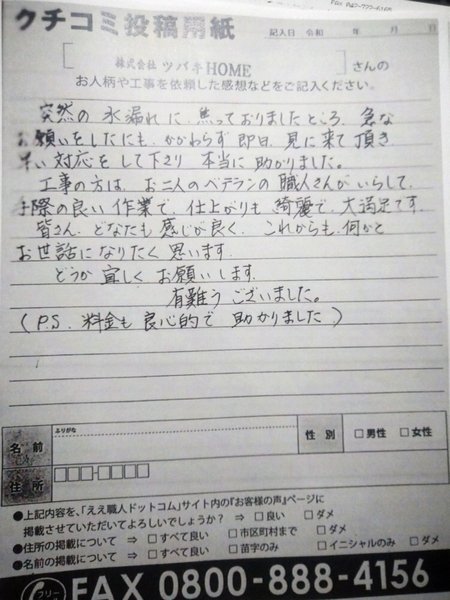 FAX 042-722-6165
クチコミ投稿用紙
記入日 令和 年 月 日
株式会社 ツバキHOME さんの
お人柄や工事を依頼した感想などをご記入ください。
突然の水漏れに焦っておりましたところ、急な
お願いをしたにも、かかわらず即日、見に来て頂き、
早い対応をして下さり 本当に助かりました。
工事の方は、お二人のベテランの職人さんがいらして、
手際の良い作業で、仕上がりも綺麗で、大満足です。
皆さん、どなたも感じが良く、これからも何かと
お世話になりたく思います。
どうか宜しくお願いします。
有難うございました。
(P.S. 料金も良心的で助かりました)
ふりがな
名前
性別 □男性 □女性
住所
□□□-□□□□
●上記内容を、「ええ職人ドットコム」サイト内の『お客様の声』ページに
掲載させていただいてよろしいでしょうか? ⇒ □良い □ダメ
●住所の掲載について ⇒ □すべて良い □市区町村まで □ダメ
●名前の掲載について ⇒ □すべて良い □苗字のみ □イニシャルのみ □ダメ
フリー FAX 0800-888-4156